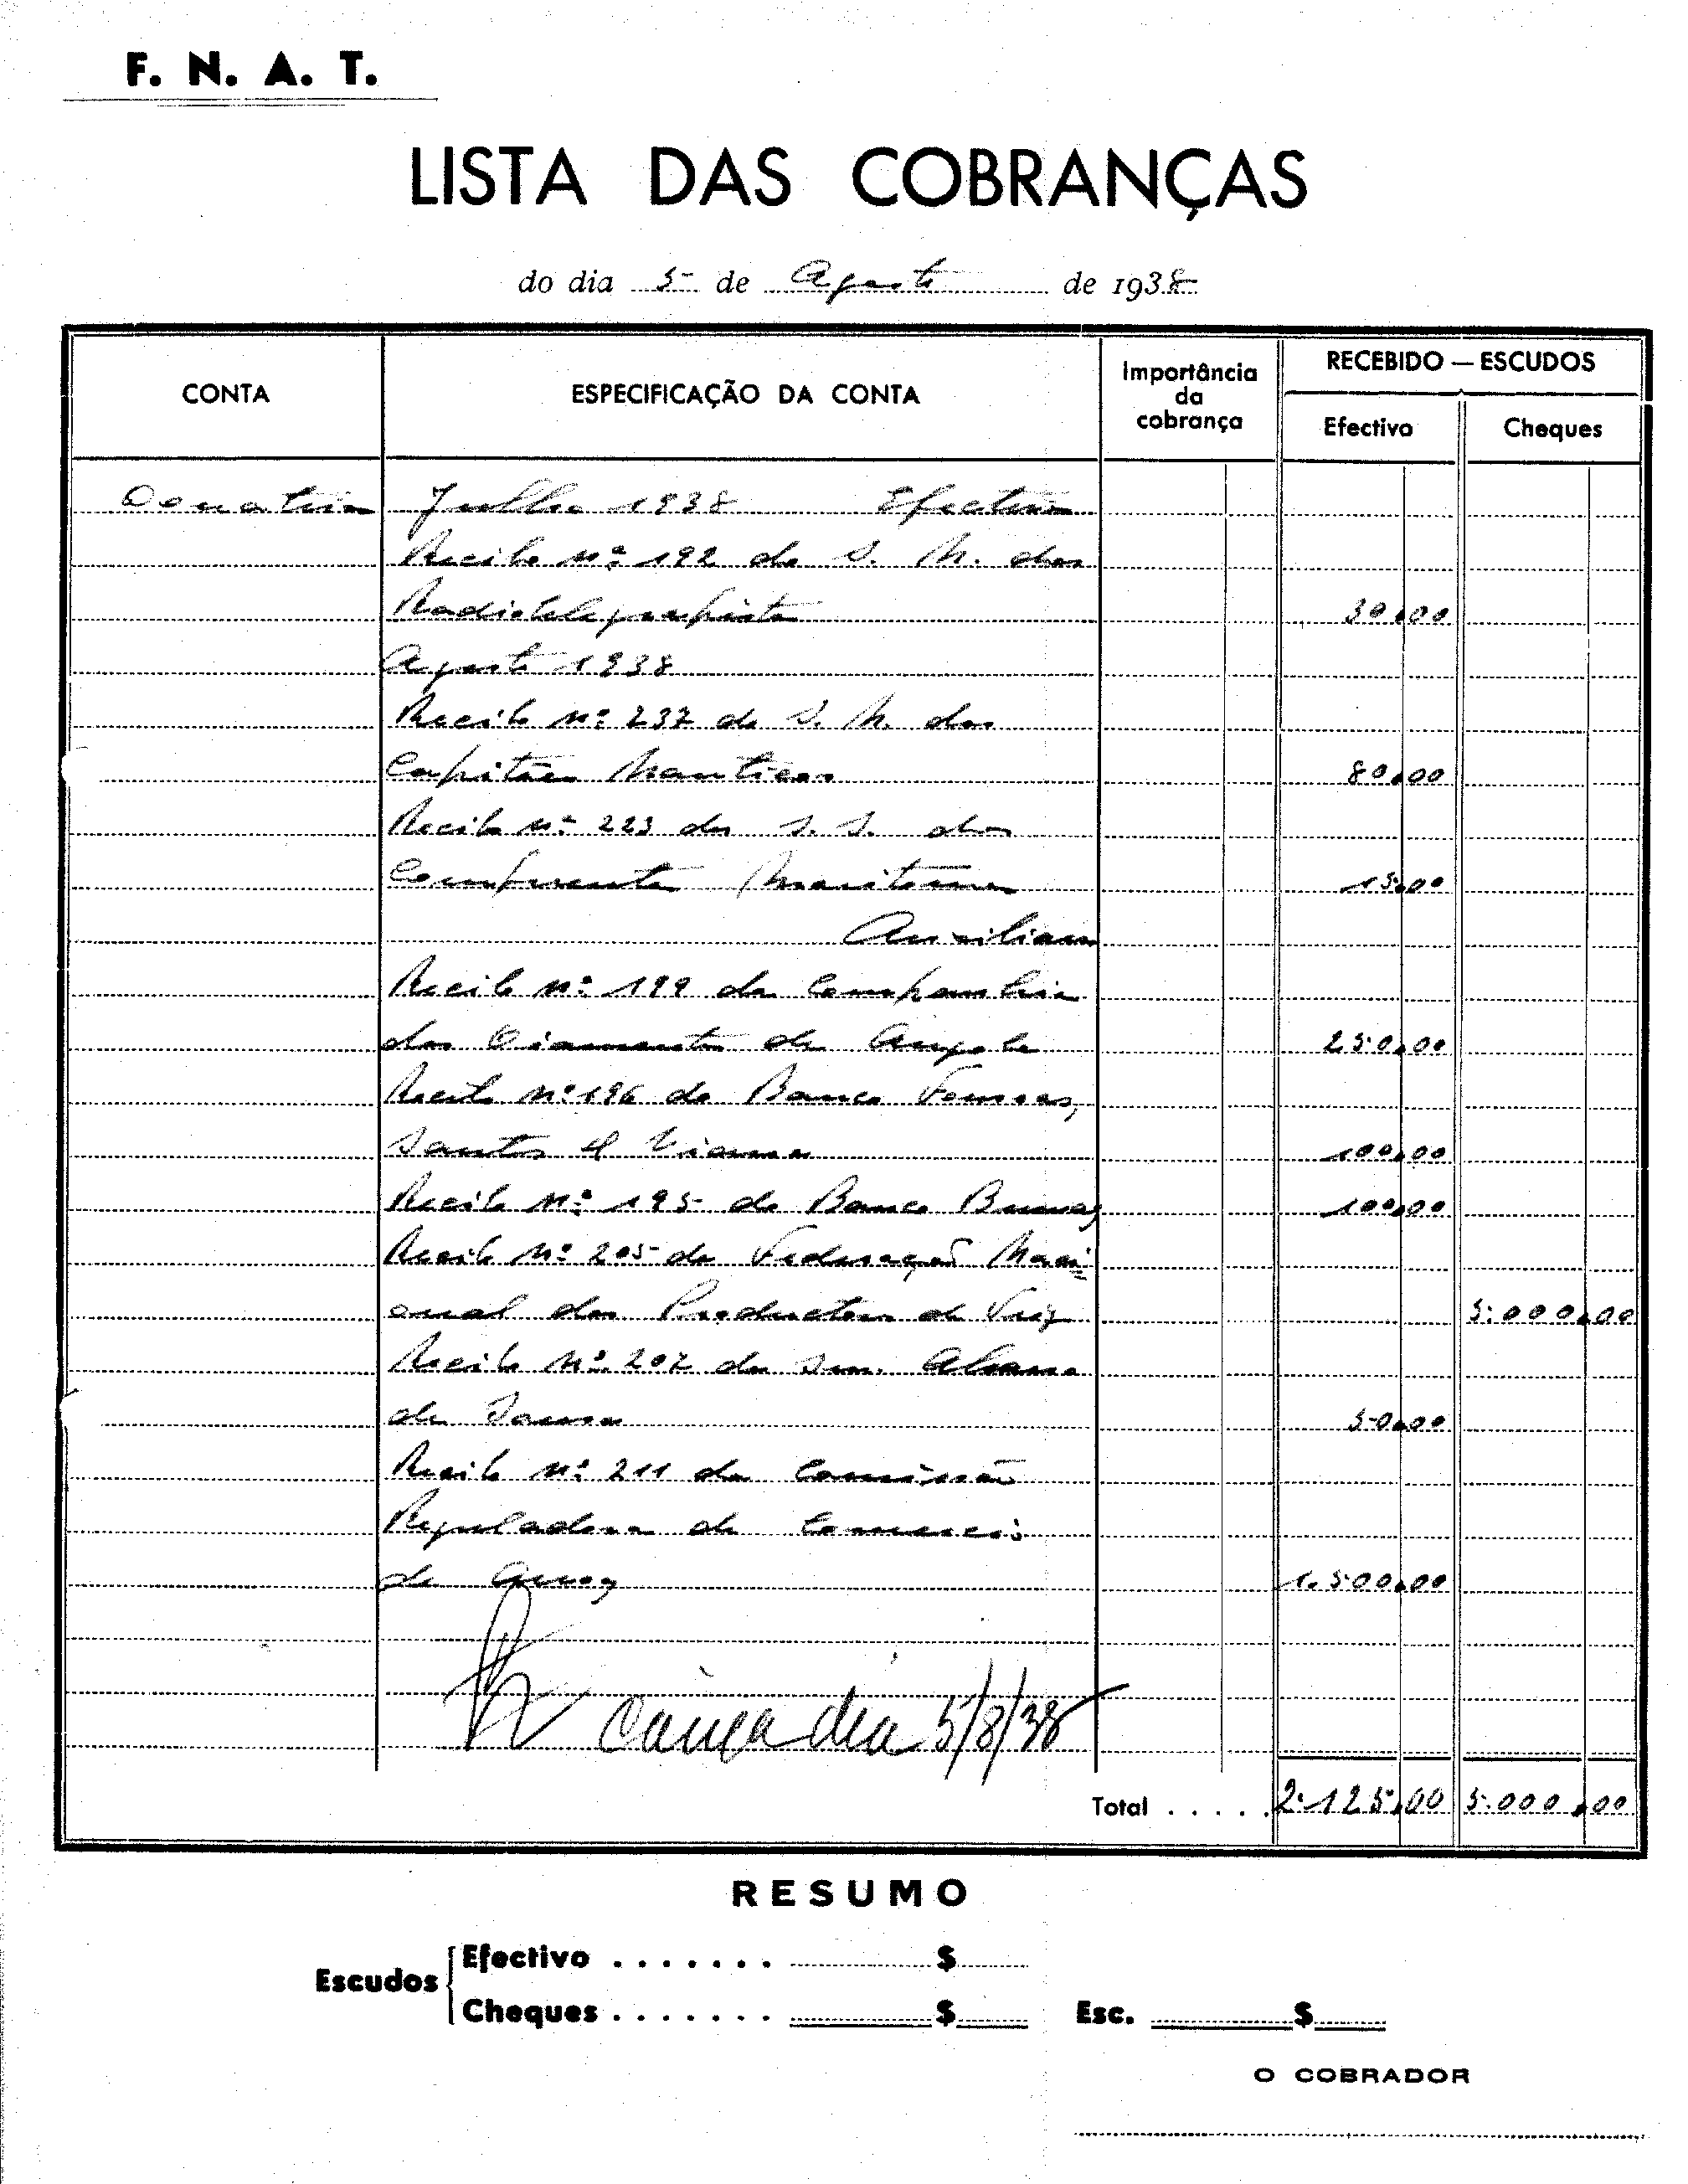 F. N. A. T.
LISTA DAS COBRANÇAS
do dia 5 de Agosto de 1938
CONTA
ESPECIFICAÇÃO DA CONTA
Importância
da
cobrança
RECEBIDO — ESCUDOS
Efectivo
Cheques
Donativos Julho 1938 Efectivos
Recibo Nº 192 do S. N. dos
Radiotelegrafistas 30.00
Agosto 1938
Recibo Nº 237 do S. N. dos
Capitães Nauticos 80.00
Recibo Nº 223 do S. dos
Maritimos 15.00
Auxiliares
Recibo Nº 199 da Companhia
dos Diamantes de Angola 250.00
Recibo Nº 196 do Banco Fonsecas,
Santos & Viana 100.00
Recibo Nº 195 do Banco Burnay 100.00
Recibo Nº 205 da Federação Naci-
onal dos Productores de Trigo 5.000.00
Recibo Nº 207 do Snr. Albano
de Sousa 50.00
Recibo Nº 211 da Comissão
Reguladora do Comercio
de Arroz 1.500.00
Caixa dia 5/8/38
Total ..... 2.125.00 5.000.00
RESUMO
Escudos
Efectivo ....... $
Cheques ....... $ Esc. $
O COBRADOR